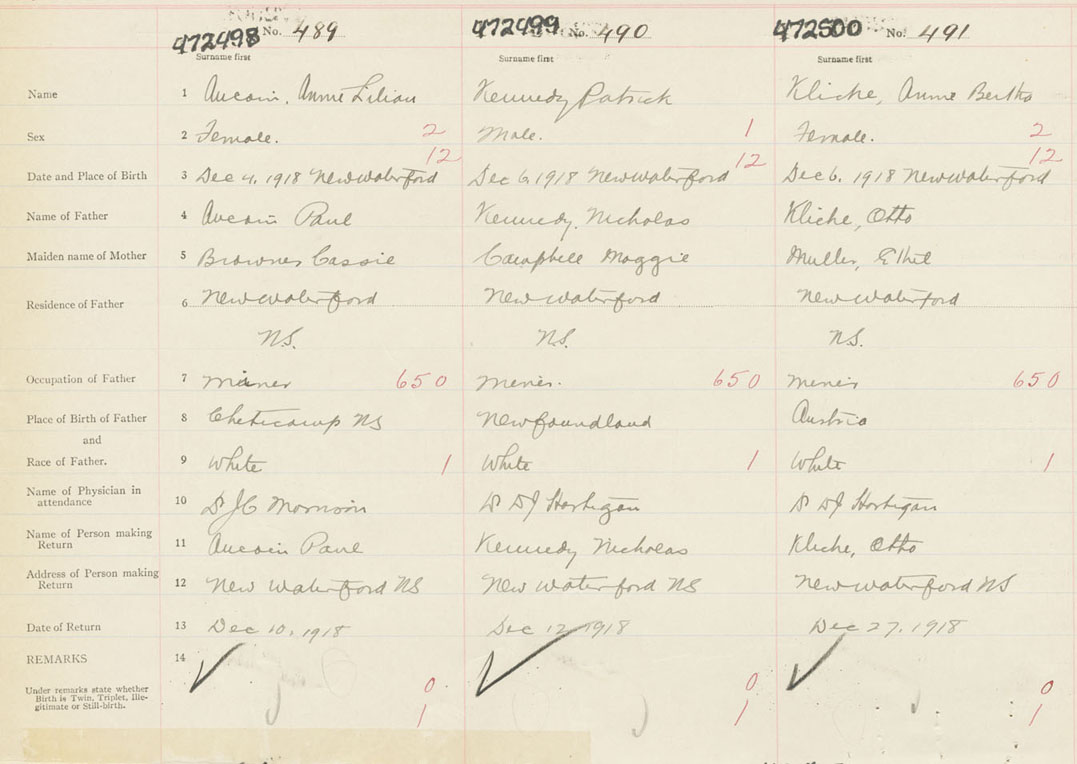 472498 No. 489 472499 No. 490 472500 No. 491
Surname first Surname first Surname first
Name 1 Aucoin, Annie Lilian Kennedy Patrick Kliche, Anna Bertha
Sex 2 Female. 2 Male. 1 Female. 2
12 12 12
Date and Place of Birth 3 Dec 4, 1918 New Waterford Dec 6, 1918 New Waterford Dec 6, 1918 New Waterford
Name of Father 4 Aucoin Paul Kennedy, Nicholas Kliche, Otto
Maiden name of Mother 5 Cassie Campbell Maggie Muller, Ethel
Residence of Father 6 New Waterford New Waterford New Waterford
N.S. N.S. N.S.
Occupation of Father 7 Miner 650 650 650
Place of Birth of Father 8 Cheticamp NS Newfoundland Austria
and
Race of Father. 9 White 1 White 1 White 1
Name of Physician in
attendance 10 Dr J C Morrison Dr D J Hartigan Dr D J Hartigan
Name of Person making
Return 11 Aucoin Paul Kennedy Nicholas Kliche, Otto
Address of Person making
Return 12 New Waterford NS New Waterford NS New Waterford NS
Date of Return 13 Dec 10, 1918 Dec 12, 1918 Dec 27, 1918
REMARKS 14
Under remarks state whether
Birth is Twin, Triplet, Ille-
gitimate or Still-birth.
0 0 0
1 1 1